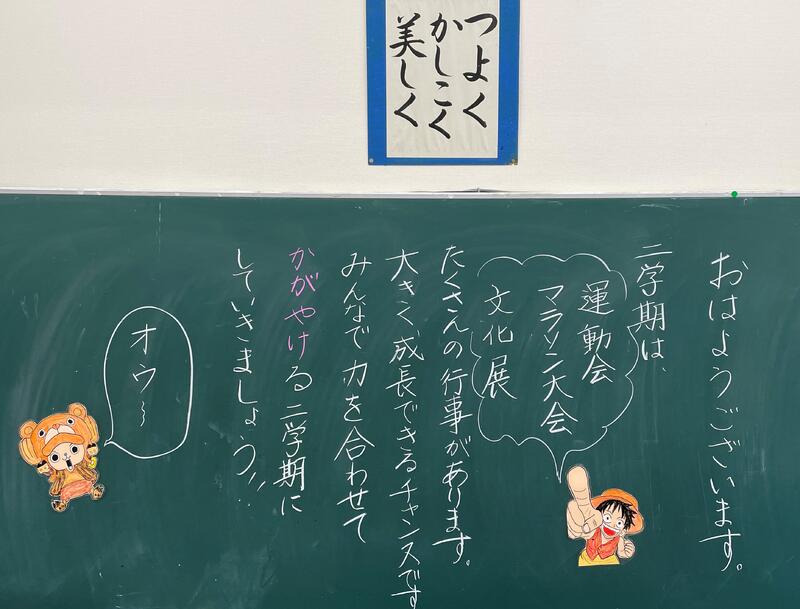 つよく
かしこく
美しく
おはようございます。
二学期は、
運動会
マラソン大会
文化展
たくさんの行事があります。
大きく成長できるチャンスです
みんなで力を合わせて
かがやける二学期に
していきましょう!!
オウ〜